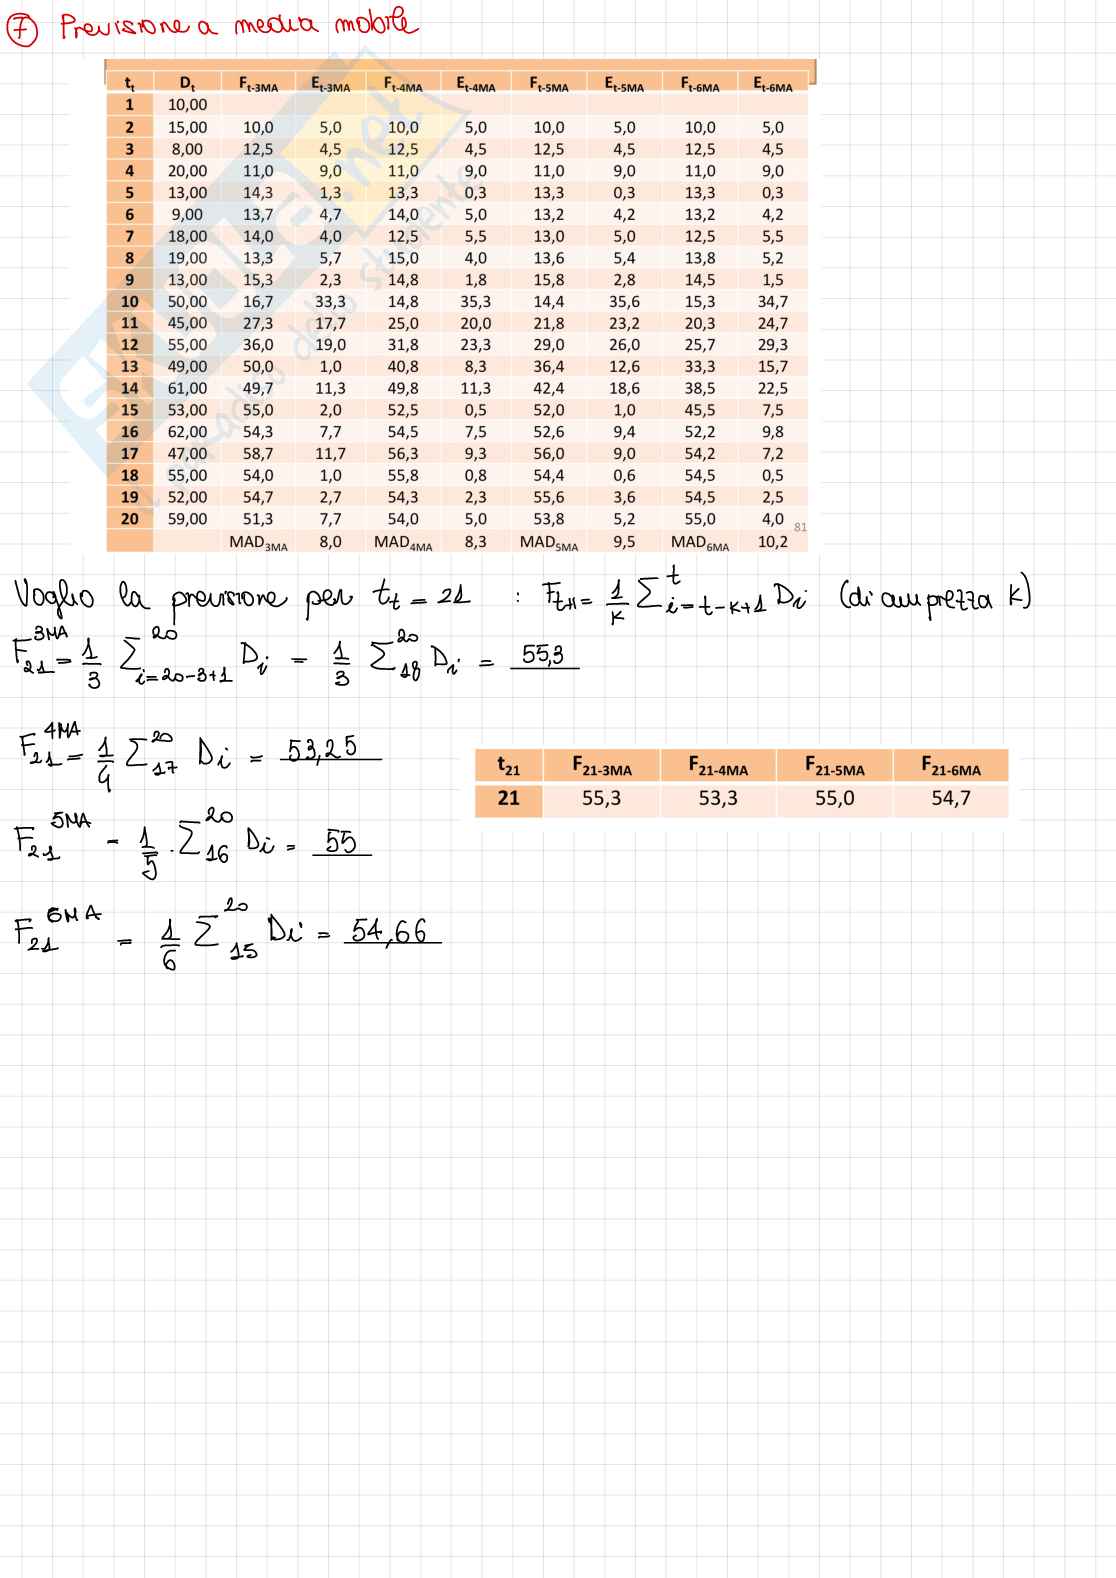 7 Previsione a media mobile
t_t D_t F_t-3MA E_t-3MA F_t-4MA E_t-4MA F_t-5MA E_t-5MA F_t-6MA E_t-6MA
1 10,00
2 15,00 10,0 5,0 10,0 5,0 10,0 5,0 10,0 5,0
3 8,00 12,5 4,5 12,5 4,5 12,5 4,5 12,5 4,5
4 20,00 11,0 9,0 11,0 9,0 11,0 9,0 11,0 9,0
5 13,00 14,3 1,3 13,3 0,3 13,3 0,3 13,3 0,3
6 9,00 13,7 4,7 14,0 5,0 13,2 4,2 13,2 4,2
7 18,00 14,0 4,0 12,5 5,5 13,0 5,0 12,5 5,5
8 19,00 13,3 5,7 15,0 4,0 13,6 5,4 13,8 5,2
9 13,00 15,3 2,3 14,8 1,8 15,8 2,8 14,5 1,5
10 50,00 16,7 33,3 14,8 35,3 14,4 35,6 15,3 34,7
11 45,00 27,3 17,7 25,0 20,0 21,8 23,2 20,3 24,7
12 55,00 36,0 19,0 31,8 23,3 29,0 26,0 25,7 29,3
13 49,00 50,0 1,0 40,8 8,3 36,4 12,6 33,3 15,7
14 61,00 49,7 11,3 49,8 11,3 42,4 18,6 38,5 22,5
15 53,00 55,0 2,0 52,5 0,5 52,0 1,0 45,5 7,5
16 62,00 54,3 7,7 54,5 7,5 52,6 9,4 52,2 9,8
17 47,00 58,7 11,7 56,3 9,3 56,0 9,0 54,2 7,2
18 55,00 54,0 1,0 55,8 0,8 54,4 0,6 54,5 0,5
19 52,00 54,7 2,7 54,3 2,3 55,6 3,6 54,5 2,5
20 59,00 51,3 7,7 54,0 5,0 53,8 5,2 55,0 4,0
81
MAD_3MA 8,0 MAD_4MA 8,3 MAD_5MA 9,5 MAD_6MA 10,2
Voglio la previsione per t_t = 21 : F_t+1 = 1/K Σ_i=t-K+1^t D_i (di ampiezza K)
F_21^3MA = 1/3 Σ_i=20-3+1^20 D_i = 1/3 Σ_18^20 D_i = 55,3
F_21^4MA = 1/4 Σ_17^20 D_i = 53,25
t_21 F_21-3MA F_21-4MA F_21-5MA F_21-6MA
21 55,3 53,3 55,0 54,7
F_21^5MA = 1/5 · Σ_16^20 D_i = 55
F_21^6MA = 1/6 Σ_15^20 D_i = 54,66